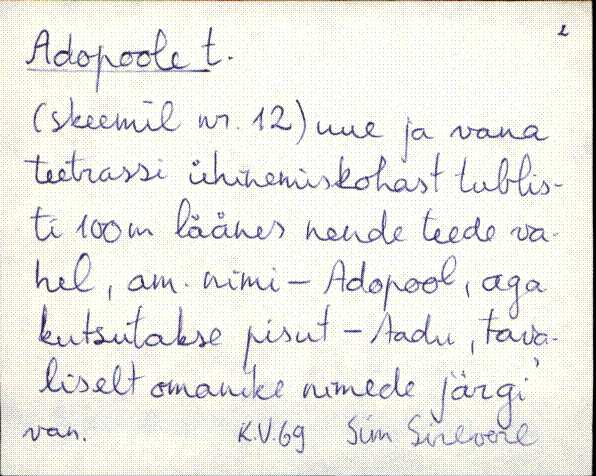 2
Adopoole t.
(skeemil nr. 12) uue ja vana
teetrassi ühinemiskohast tublis-
ti 100m läänes nende teede va-
hel, am. nimi - Adopool, aga
kutsutakse pisut - Aadu, tava-
liselt omanike nimede järgi
van. K.V.69 Siim Sirevere